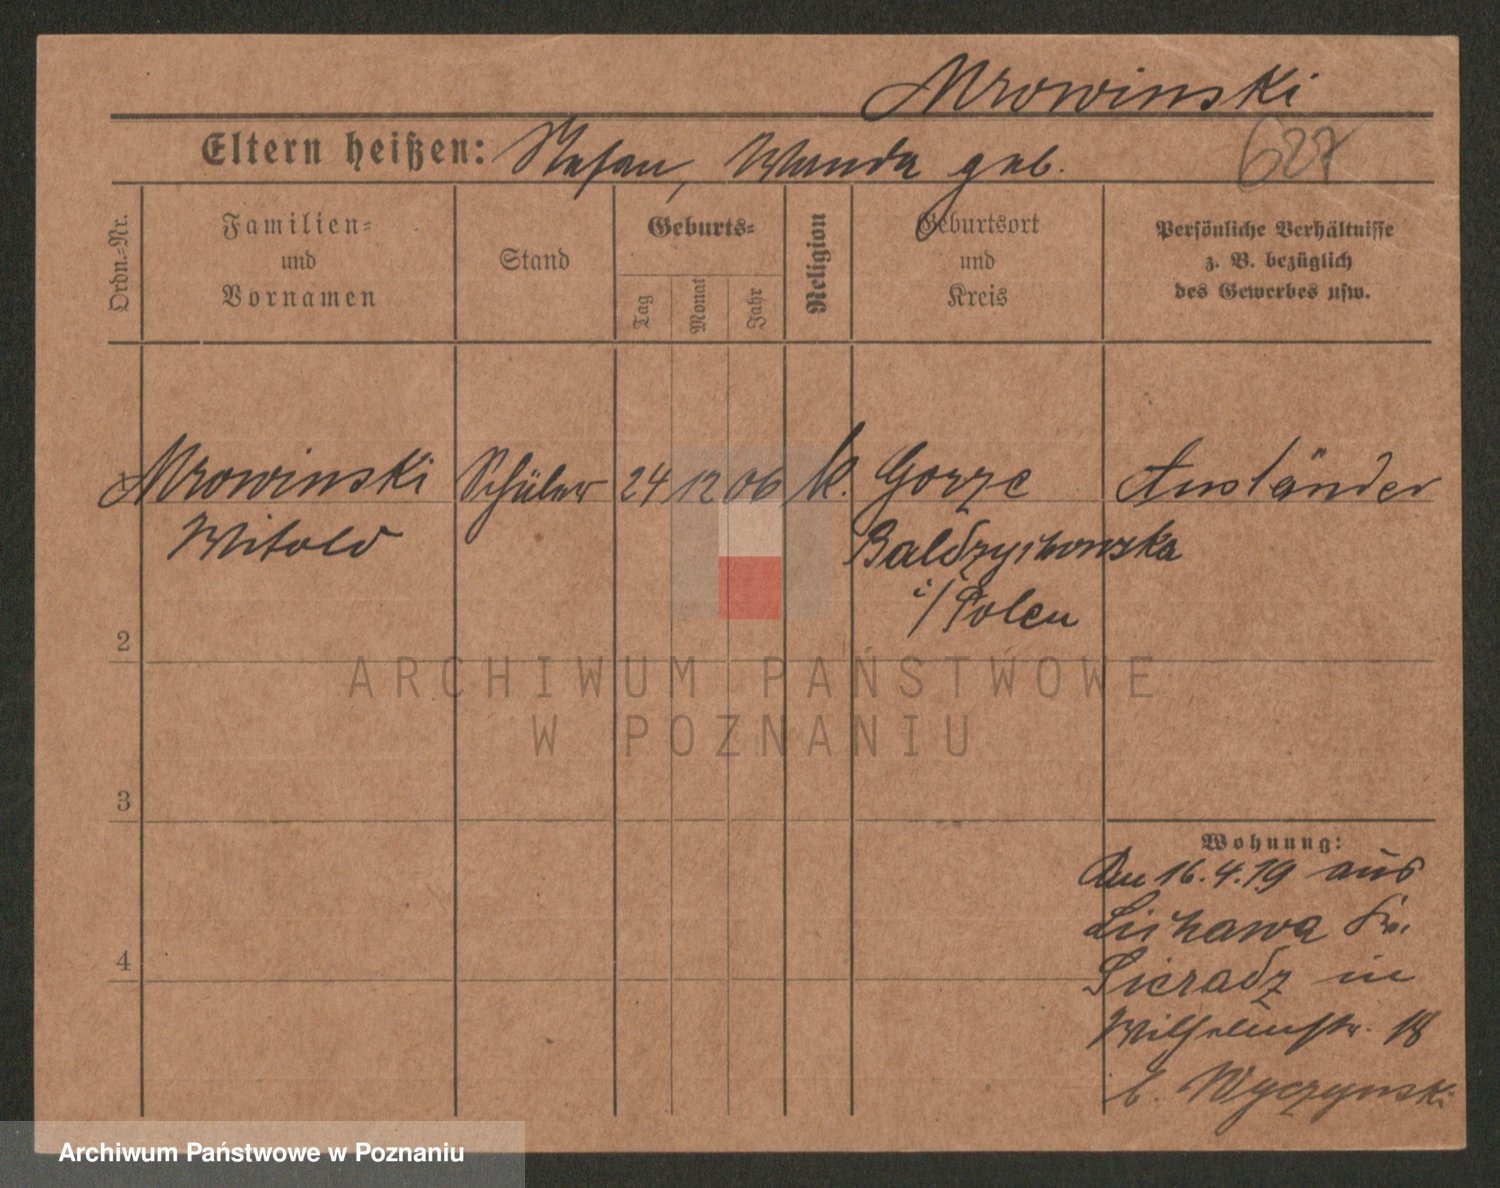 Mrowinski
627
Eltern heißen: Stefan, Wanda geb.
Ordn.-Nr.
Familien- und Vornamen
Stand
Geburts-
Tag
Monat
Jahr
Religion
Geburtsort und Kreis
Persönliche Verhältnisse z. B. bezüglich des Gewerbes usw.
1 Mrowinski Schüler 24 12 06 k. Gorze Ausländer
Witold Baldrzychowska
i/Polen
2
ARCHIWUM PAŃSTWOWE
W POZNANIU
3
Wohnung:
Am 16.4.19 aus
Lichawa Kr.
4
Sieradz in
Wilhelmstr. 18
b. Wyczynski
Archiwum Państwowe w Poznaniu